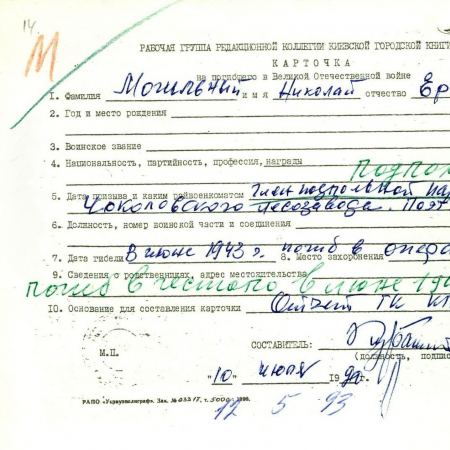 14
М
РАБОЧАЯ ГРУППА РЕДАКЦИОННОЙ КОЛЛЕГИИ КИЕВСКОЙ ГОРОДСКОЙ КНИГИ
КАРТОЧКА
на погибшего в Великой Отечественной войне
1. Фамилия Могильный имя Николай отчество Ер
2. Год и место рождения
3. Воинское звание
4. Национальность, партийность, профессия, награды
подпол
5. Дата призыва и каким райвоенкоматом Член подпольной
Чоколовского лесозавода. Поэт
6. Должность, номер воинской части и соединения
7. Дата гибели В июне 1943 г. погиб в 8. Место захоронения
9. Сведения о родственниках, адрес местожительства
погиб в гестапо в июне 19
10. Основание для составления карточки Отчет ГК
СОСТАВИТЕЛЬ:
М.П.
(должность, подпис
"10" июля 199 г.
РАПО «Укрвузполиграф». Зак. № 0331Т, т. 5000. 1990.
12 5 93